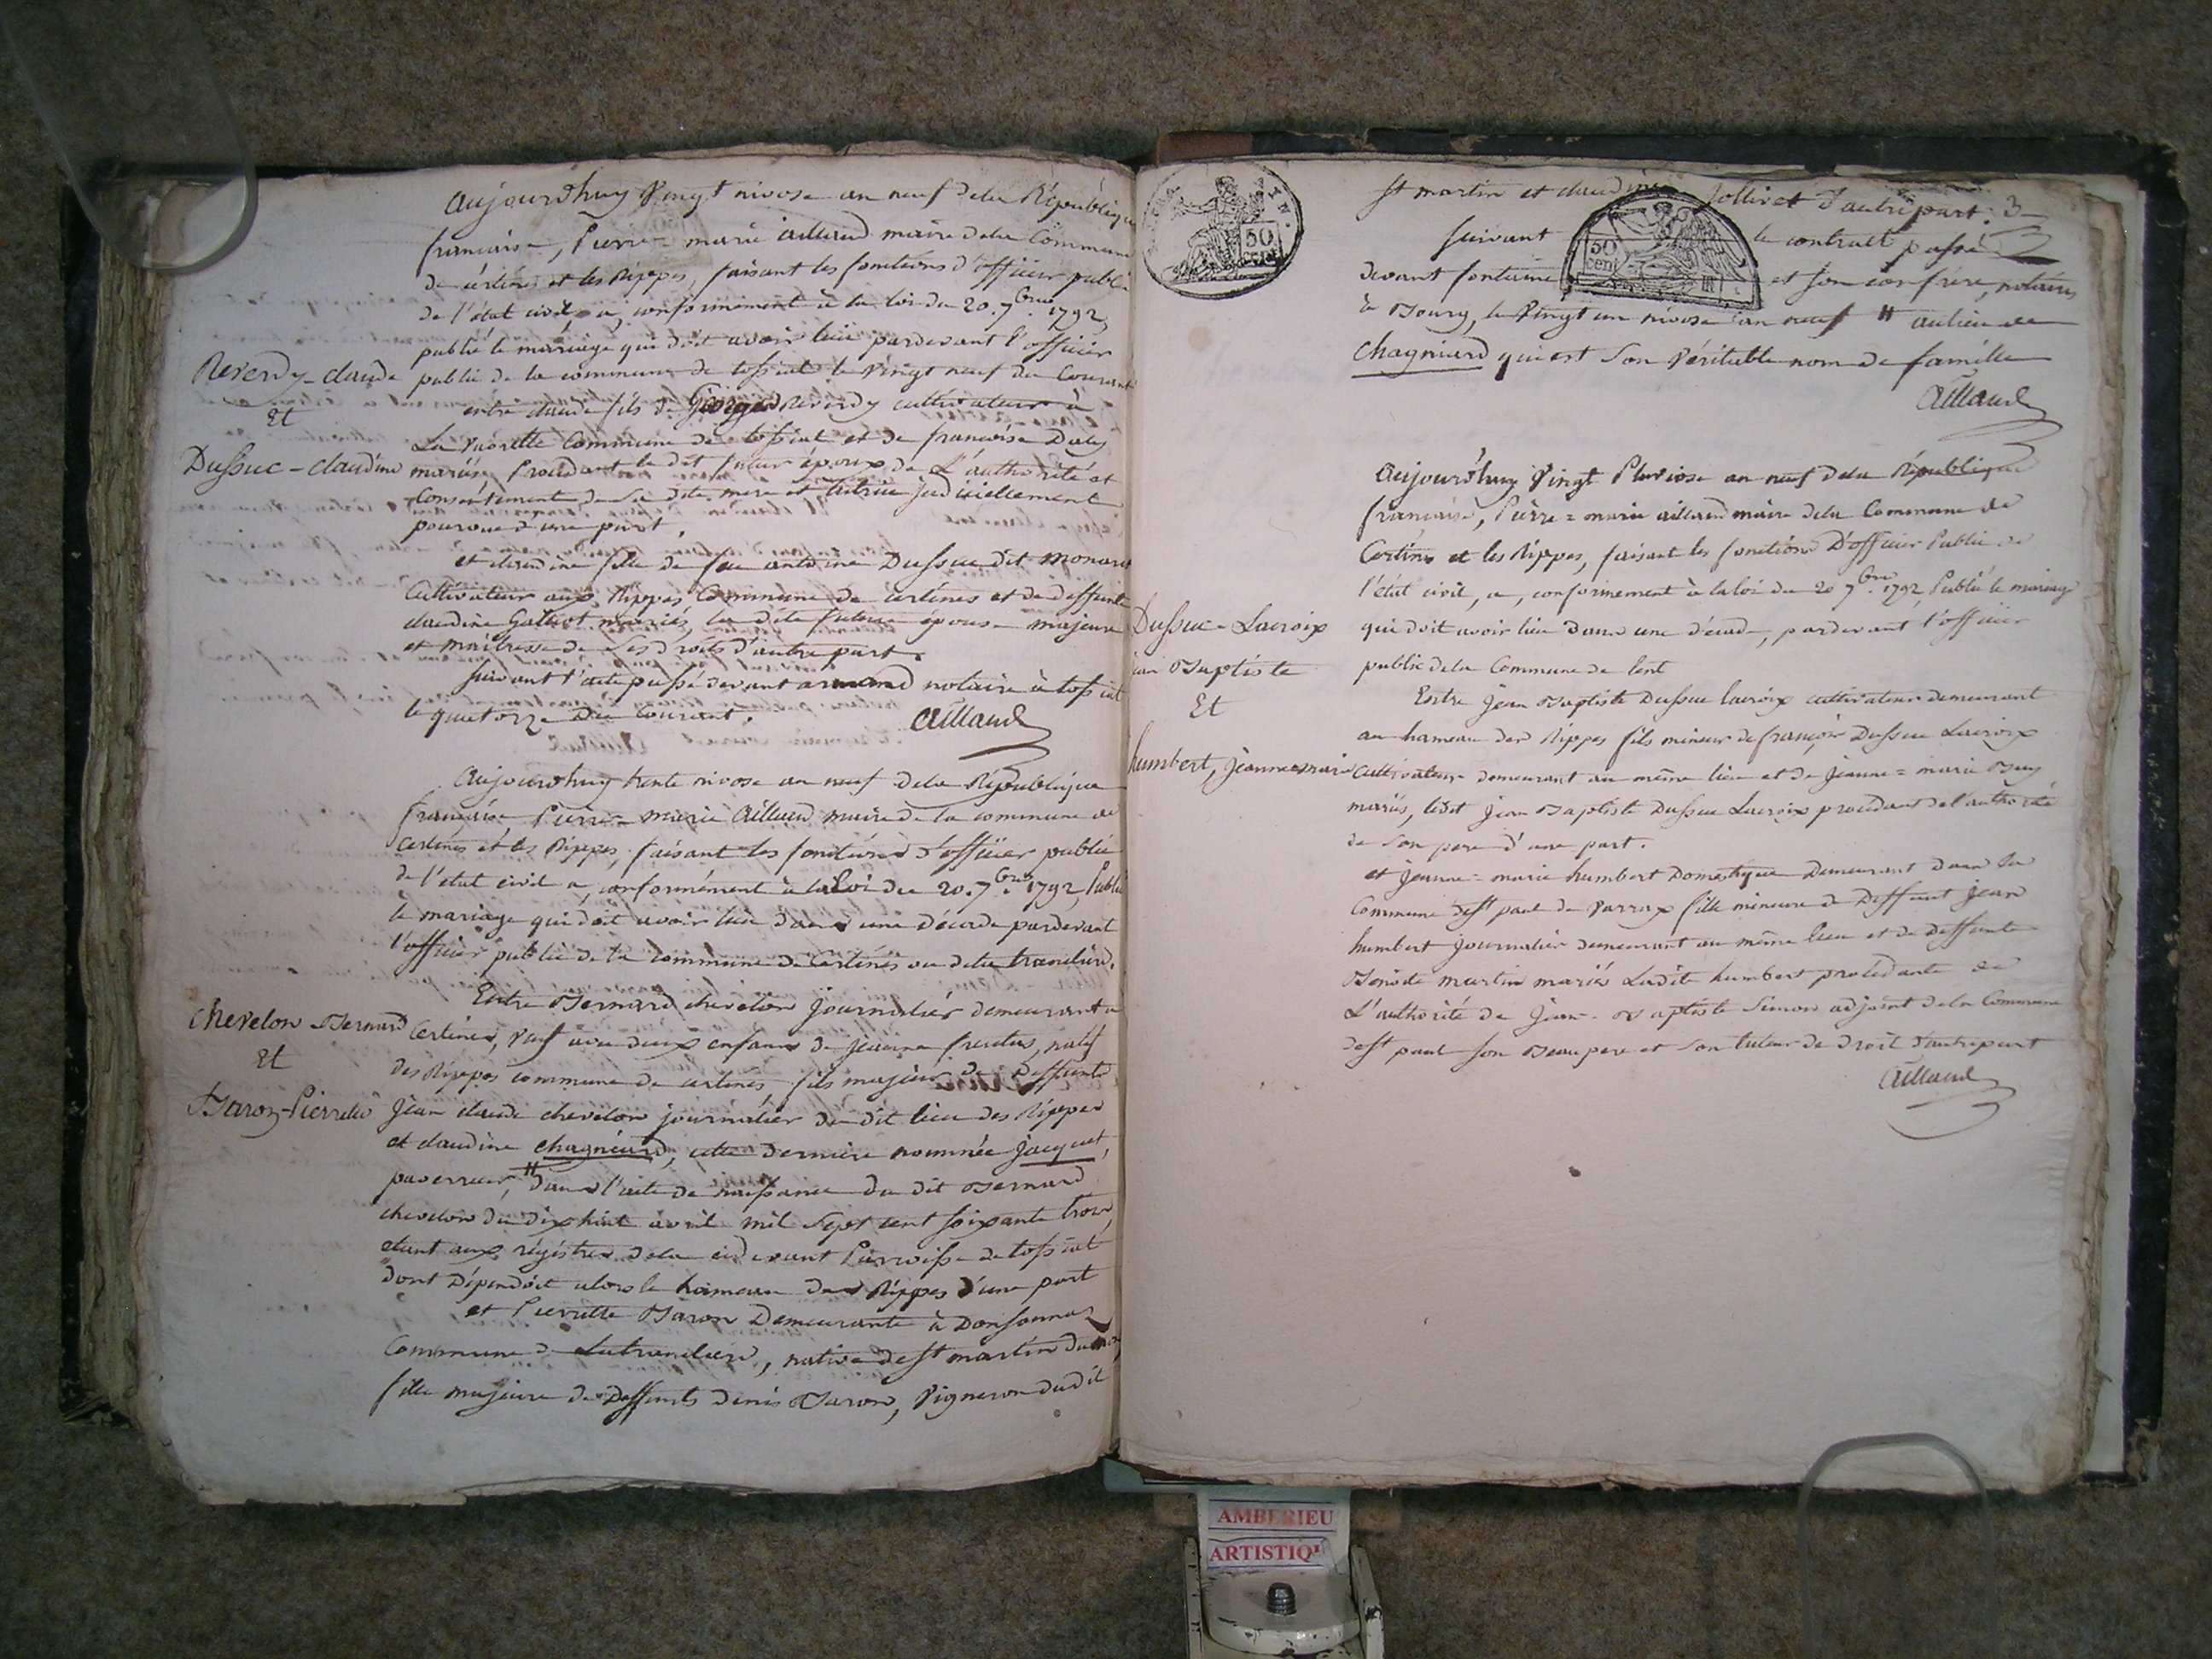 aujourdhuy vingt nivose an neuf dela République
francaise, Pierre = marie aillaud maire dela Commune
de certines et les Rippes, faisant les fonctions d'officier public
de l'état civil, a, conformément à la loi du 20. 7bre 1792,
publié le mariage qui doit avoir lieu pardevant l'officier
public de la commune de tossiat le vingt neuf du Courant
Reverdy - claude
Et
Dussuc - claudine
entre claude fils de George Reverdy cultivateur à
La Commune de tossiat et de francoise
mariés, Procedant le dit futur époux de L'authorité et
Consentement de sa dite mere et tutrice judiciellement
pourvue d'une part.
et claudine fille de feu antoine Dussuc dit monard
Cultivateur aux Rippes Commune de certines et de deffunte
claudine mariés, la dite future epouse majeure
et maitresse de ses droits d'autre part.
suivant l'acte passé devant armand notaire à tossiat
le quatorze du Courant.
aillaud
aujourdhuy trente nivose an neuf dela République
francaise, Pierre = marie aillaud maire de la commune de
certines et les Rippes, faisant les fonctions d'officier public
de l'etat civil a, conformément à la Loi du 20. 7bre 1792, Publié
le mariage qui doit avoir lieu dans une décade pardevant
l'officier public de la Commune de Certines ou dela tranclière.
chevelon Bernard
Et
Baron-Pierrette
Entre Bernard chevelon journalier demeurant a
Certines, veuf avec deux enfans de jeanne natif
des Rippes commune de certines fils majeur de Deffunts
Jean claude chevelon journalier du dit lieu des Rippes
et claudine chagniard, cette derniere nommée jacquet,
par erreur, # dans l'acte de naissance du dit Bernard
chevelon du dix huit avril mil sept cent soixante trois,
etant aux régistres dela cidevant Parroisse de tossiat
dont Dépendoit alors le hameau des Rippes d'une part
et Pierrette Baron Demeurante à Donsonnas
Commune de Latranclière, native de st martin du mont,
fille majeure de Deffunts denis Baron, vigneron dudit
st martin et claudine Jollivet d'autre part. 3
suivant le contract passé
devant fontaine et son confrère, notaires
à Bourg, le vingt un nivose an neuf # aulieu de
chagniard qui est son véritable nom de famille
aillaud
50
cent
50
cent
Dussuc - Lacroix
jean Baptiste
Et
humbert, jeanne marie
aujourdhuy vingt Pluviose an neuf dela République
francaise, Pierre = marie aillaud maire dela Commune de
Certines et les Rippes, faisant les fonctions D'officier Public de
l'état civil, a, conformement à la loi du 20 7bre 1792, Publié le mariage
qui doit avoir lieu dans une décade, pardevant l'officier
public dela Commune de lent
Entre jean Baptiste Dussuc lacroix cultivateur demeurant
au hameau des Rippes fils mineur de françois Dussuc Lacroix
Cultivateur demeurant au même lieu et de jeanne = marie
mariés, ledit jean Baptiste Dussuc Lacroix procédant de l'authorité
de son pere d'une part.
et jeanne = marie humbert Domestique Demeurant dans la
Commune de st paul de varrax fille mineure de Deffunt jean
humbert journalier demeurant au même lieu et de deffunte
Benoite martin mariés Ladite humbert procédante de
L'authorité de jean Baptiste Simon adjoint dela Commune
de st paul son Beau pere et son tuteur de droit d'autre part
aillaud
AMBERIEU
ARTISTIQ